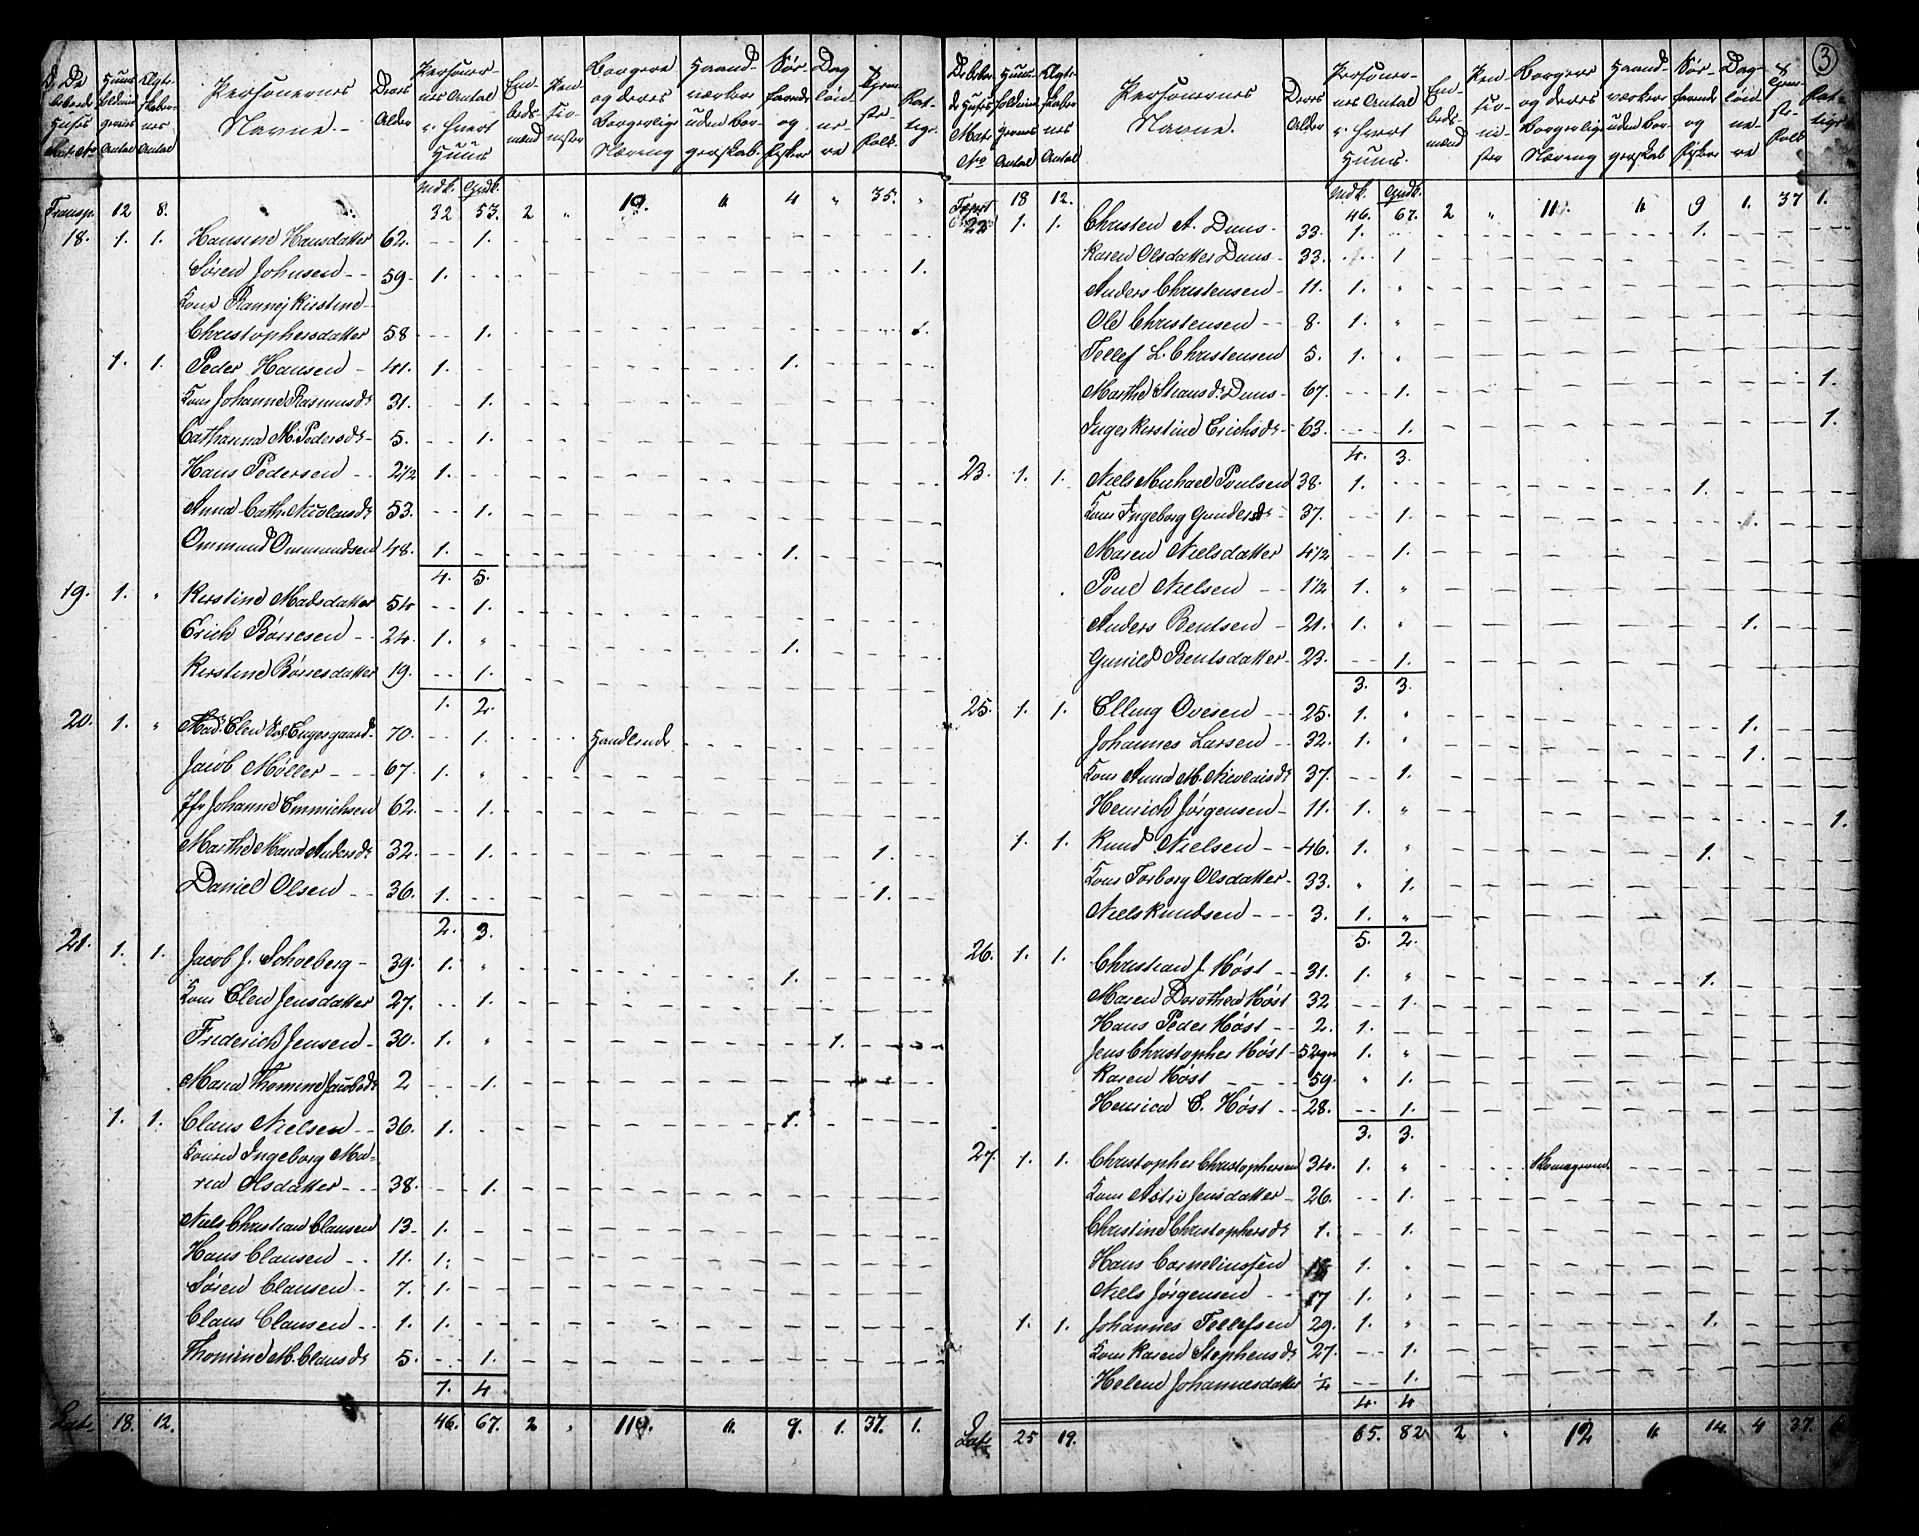 3
De be- boede Huses Mat: No | Huus- holdnin- gernes Antal | Ægte- skaber- nes Antal | Personernes Navne | Deres Alder | Personer- nes Antal i hvert Huus | Em- beds- mænd | Pen- sio- nister | Borgere og deres borgerlige Næring | Haand- værker uden Bor- gerskab. | Søe- farende og Fisker | Dag- løn- ne- re | Tjene- ste- Folk. | Fat- tige.
Mdk. Qvdk.
Transp. 12 8. 32 53. 2 " 10. " 4 " 35. "
18. 1. 1. Hansine Hansdatter 62. 1.
Søren Johnsen 59. 1. 1.
Kone Rannej Kirstine
Christophersdatter 58 1. 1.
1. 1. Peder Hansen 41. 1. 1.
Kone Johanne Rasmusdr 31. 1.
Cathanna M. Pedersdr 5. 1.
Hans Pedersen 2 1/2 1.
Anna Cath: Nicolaisdr 53. 1.
Ommund Ommundsen 48. 1. 1.
4. 5.
19. 1. " Kirstine Madsdatter 54 1.
Erich Børresen 24. 1. " 1.
Kirstine Børresdatter 19. 1.
1. 2.
20. 1. " Mad: Elen Engersgaard 70. 1. Handlende
Jacob Møller 67. 1. "
Jfr Johanne Emmichsen 62. 1.
Marthe Maria Andersdr 32. 1. 1.
Daniel Olsen 36. 1. 1.
2. 3.
21. 1. 1. Jacob J. Scholberg 39. 1. " 1.
Kone Elen Jensdatter 27. 1.
Friderich Jensen 30. 1. " 1.
Maria Thomine Jacobsdr 2 1.
1. 1. Claus Nielsen 36. 1. 1.
Konen Ingeborg Ma-
ria Olsdatter 38. 1.
Niels Christian Clausen 13. 1.
Hans Clausen 11. 1.
Søren Clausen 7. 1.
Claus Clausen 1. 1.
Thomine M. Clausdr 5. 1.
7. 4
Lat. 18. 12. 46. 67. 2 " 11. " 9. 1. 37. 1.
De beboe- de Huses Mat: No | Huus- holdnin- gernes Antal | Ægte- skaber- nes Antal | Personernes Navne. | Deres Alder | Personer- nes Antal i hvert Huus. | Em- beds- mænd | Pen- sio- ni- ster | Borgere og deres Borgerlige Næring | Haand- værker uden Bor- gerskab | Søe- farende og Fisker | Dag- løn- ne- re | Tjene- ste- Folk | Fat- tige
Mdk. Qvdk.
Trspt 18 12. 46. 67. 2 " 11. " 9 1. 37 1.
22 1. 1. Christen A. Duus 33. 1. 1.
Karen Olsdatter Duus 33. 1
Anders Christensen 11. 1. "
Ole Christensen 8. 1. "
Tellef L. Christensen 5. 1. "
Marthe Duus 67. 1. 1.
Inger Kirstine Erichsdr 63. 1. 1.
4. 3.
23. 1. 1. Niels Michael Poulsen 38. 1. 1.
Kone Ingeborg Gundersdr 37. 1.
Maren Nielsdatter 4 1/2 1.
Poul Nielsen 1 1/2 1. "
Anders Bentsen 21. 1. " 1.
Gunild Bentsdatter 23. 1.
3. 3.
25. 1. 1. Elling Ovesen 25. 1. " 1.
Johannes Larsen 32. 1. " 1.
Kone Anna M. Nicolaisdr 37. 1.
Henrich Jørgensen 11. 1. " 1.
1. 1. Knud Nielsen 46. 1. " 1.
Kone Torborg Olsdatter 33. " 1.
Niels Knudsen 3. 1. "
5. 2.
26. 1. 1. Christian J. Høst 31. 1. " 1.
Maren Dorothea Høst 32 1.
Hans Peder Høst 2. 1.
Jens Christopher Høst 1. "
Karen Høst 59. " 1.
Henrica C. Høst 28. 1.
3. 3.
27. 1. 1. Christopher Christophersen 34. 1. " Skomagersvend
Kone Jensdatter 26. 1.
Christine Christophersdr 1. 1.
Hans Corneliussen 1. "
Niels Jørgensen 17 1. "
1. 1. Johannes Tellefsen 29. 1. " 1.
Kone Karen Stephensdr 27. 1.
Helene Johannesdatter 1/4 1.
4. 4
Lat: 25 19. 65. 82 2 " 12 " 14. 4 37.